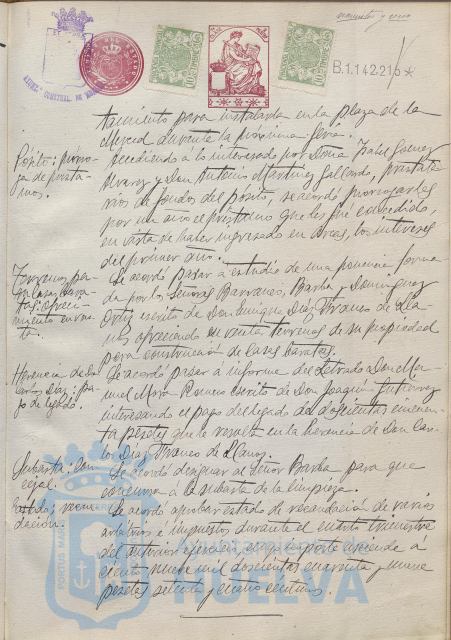 B.1.142.215*
tamiento para instalarla en la plaza de la
Merced durante la próxima feria.
Pósito: prórro-
ga de présta-
mos.
Accediendo á lo interesado por Doña Isabel Gomez
Alvarez y Don Antonio Martinez Gallardo, prestata-
rios de fondos del pósito, se acordó prorrogarles
por un año el préstamo que les fué concedido,
en vista de haber ingresado en arcas, los intereses
del primer año.
Terrenos pa-
ra Casas Bara-
tas: ofreci-
miento en ven-
ta.
Se acordó pasar á estudio de una ponencia forma-
da por los Señores Barranco, Barba y Dominguez
Ortiz escrito de Don Enrique Diaz Franco de Lla-
nos ofreciendo en venta terrenos de su propiedad
para construcción de Casas Baratas.
Herencia de Don
Carlos Diaz: pa-
go de legado.
Se acordó pasar á informe del Letrado Don Ma-
nuel Mora Romero escrito de Don Joaquin Gutierrez
interesando el pago del legado de doscientas cincuen-
ta pesetas que le resulta en la herencia de Don Car-
los Diaz Franco de Llanos.
Subasta: Con-
cejal.
Se acordó designar al Señor Barba para que
concurra á la subasta de la limpieza.
recau-
dación.
Se acordó aprobar estado de recaudación de varios
arbitrios é impuestos durante el cuarto trimestre
del anterior ejercicio, cuyo importe asciende á
ciento nueve mil doscientas cuarenta y nueve
pesetas setenta y cuatro centimos.
Ayuntamiento de
HUELVA